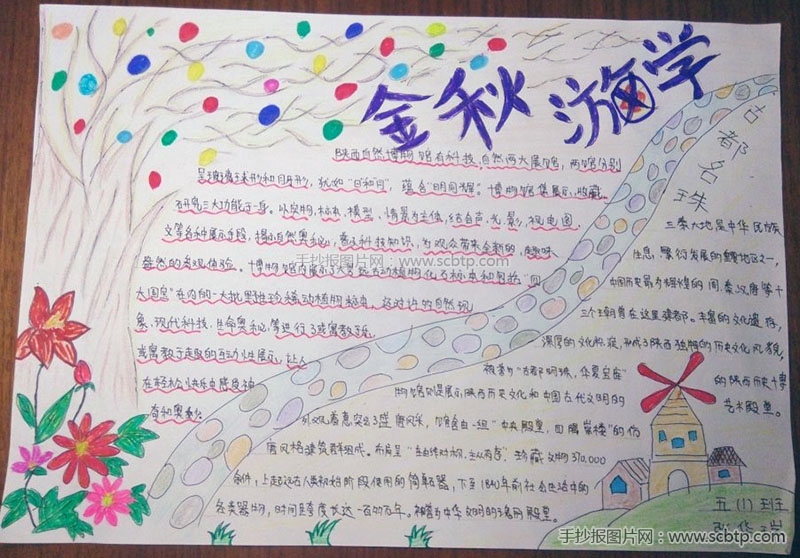 金秋游学
陕西自然博物馆有科技,自然两大展馆,两馆分别
呈玻璃球形和月牙形,犹如"日和月",蕴含"明间"。博物馆集展示,收藏
研究三大功能于一身。以实物,标本,模型,情景为主体,结合声,光,影,视,电,图
文等各种展示手段,揭示自然奥秘,普及科技知识,为观众带来全新的,趣味
盎然的参观体验。博物馆内展示了大量远古动植物化石标本和包括"四
大国宝"在内的一大批野生珍稀动植物标本,这对许的自然现
象,现代科技,生命奥秘,等进行了疑寓教于乐
或寓教于趣的互动性展示,让人
在轻松快乐中
奇和奥秘。
古都名珠
三秦大地是中华民族
生息,繁衍发展的重要地区之一,
中国历史最为辉煌的周,秦,汉,唐等十
三个王朝曾在这里建都。丰富的文化遗存,
深厚的文化积淀,形成了陕西独特的历史文化风貌,
被誉为"古都明珠,华夏宝库"的陕西历史博
物馆则是展示陕西历史文化和中国古代文明的艺术殿堂。
外观着意突出了盛唐风采,馆舍由一组"中央殿堂,四隅崇楼"的仿
唐风格建筑群组成。布局呈"主由线对称,主从有序"。珍藏文物370,000
余件,上起远古人类初始阶段使用的简单石器,下至1840年前社会生活中的
各类器物,时间跨度长达一百多万年。被誉为中华文明的瑰丽殿堂。
五(1)班
手抄报图片网:www.scbtp.com
手抄报图片网:www.scbtp.com